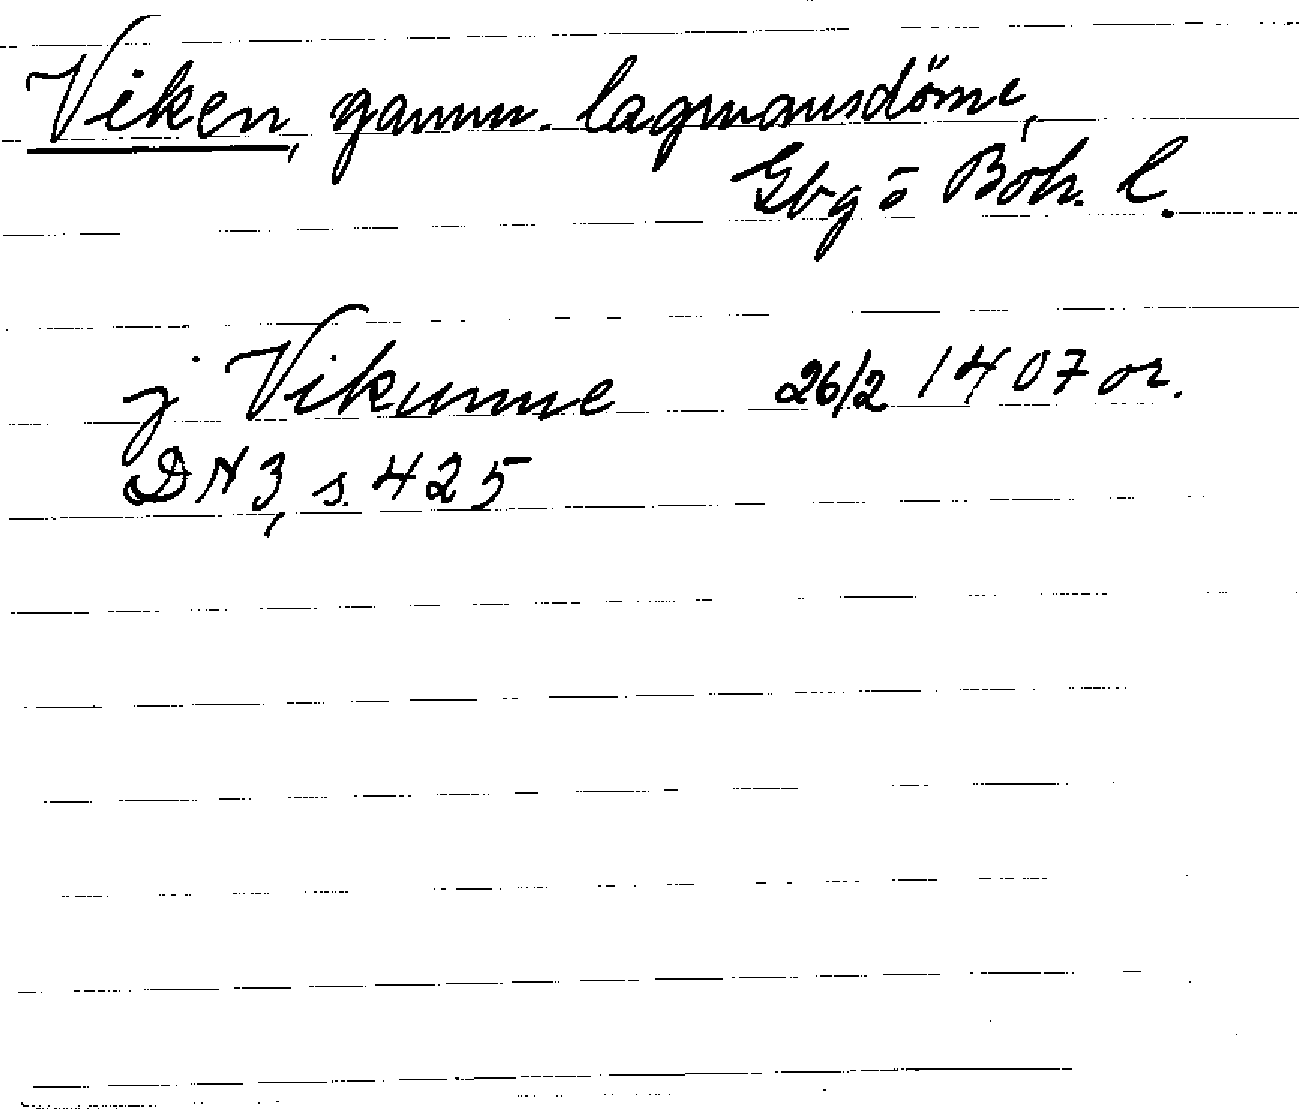 Viken, gamm. lagmansdöme,
Gbg o Boh. l.
j Vikunne 26/2 1407 or.
DN 3, s. 425